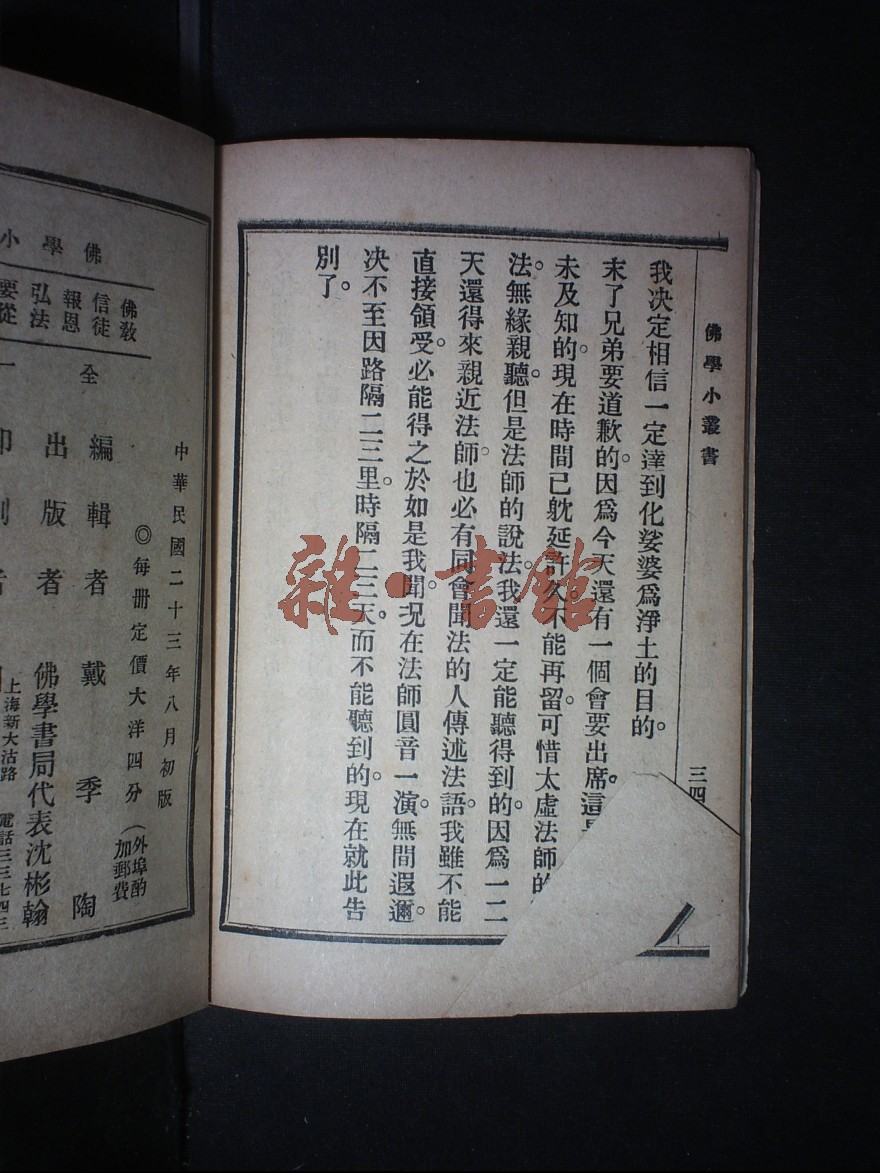 佛學小叢書
三四
我決定相信一定達到化娑婆爲淨土的目的。
末了兄弟要道歉的。因爲今天還有一個會要出席。這是
未及知的。現在時間已躭延許久。不能再留。可惜太虛法師的
法。無緣親聽。但是法師的說法。我還一定能聽得到的。因爲一二
天還得來親近法師。也必有同會聞法的人傳述法語。我雖不能
直接領受。必能得之於如是我聞。況在法師圓音一演。無間遐邇。
決不至因路隔二三里。時隔二三天。而不能聽到的。現在就此告
別了。
雜·書館
中華民國二十三年八月初版
◎每册定價大洋四分(外埠酌加郵費
編輯者 戴季陶
出版者 佛學書局代表沈彬翰
上海新大沽路 電話三三七四三
佛學小
佛教信徒報恩弘法要從
全一